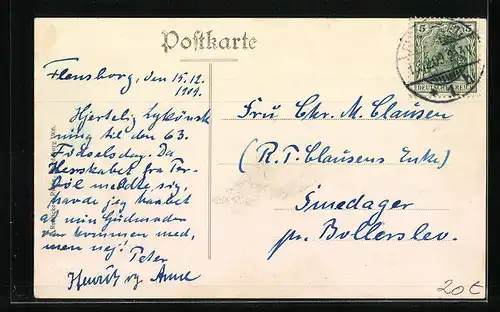 Postkarte
Flensborg, den 15.12.
1909.
Hjertelig Lykönsk
ning til den 63.
Födselsdag. Da
Herskabet fra Tor-
böl meldte sig,
havde jeg haabet
at min Gudmoder
var kommen med,
men nej!
Peter
Henrik og Anne
Fru Chr. M. Clausen
(R. T. Clausens Enke)
Smedager
pr. Bollerslev.
5
DEUTSCHES REICH
20€